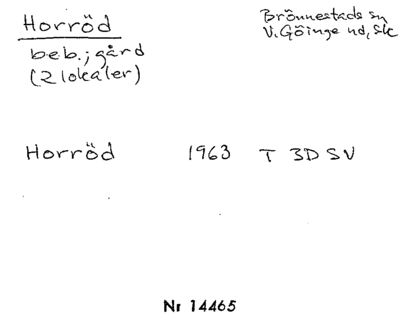 Horröd
Brönnestads sn
beb.; gård
V. Göinge hd, Sk
(2 lokaler)
Horröd 1963 T 3D SV
Nr 14465